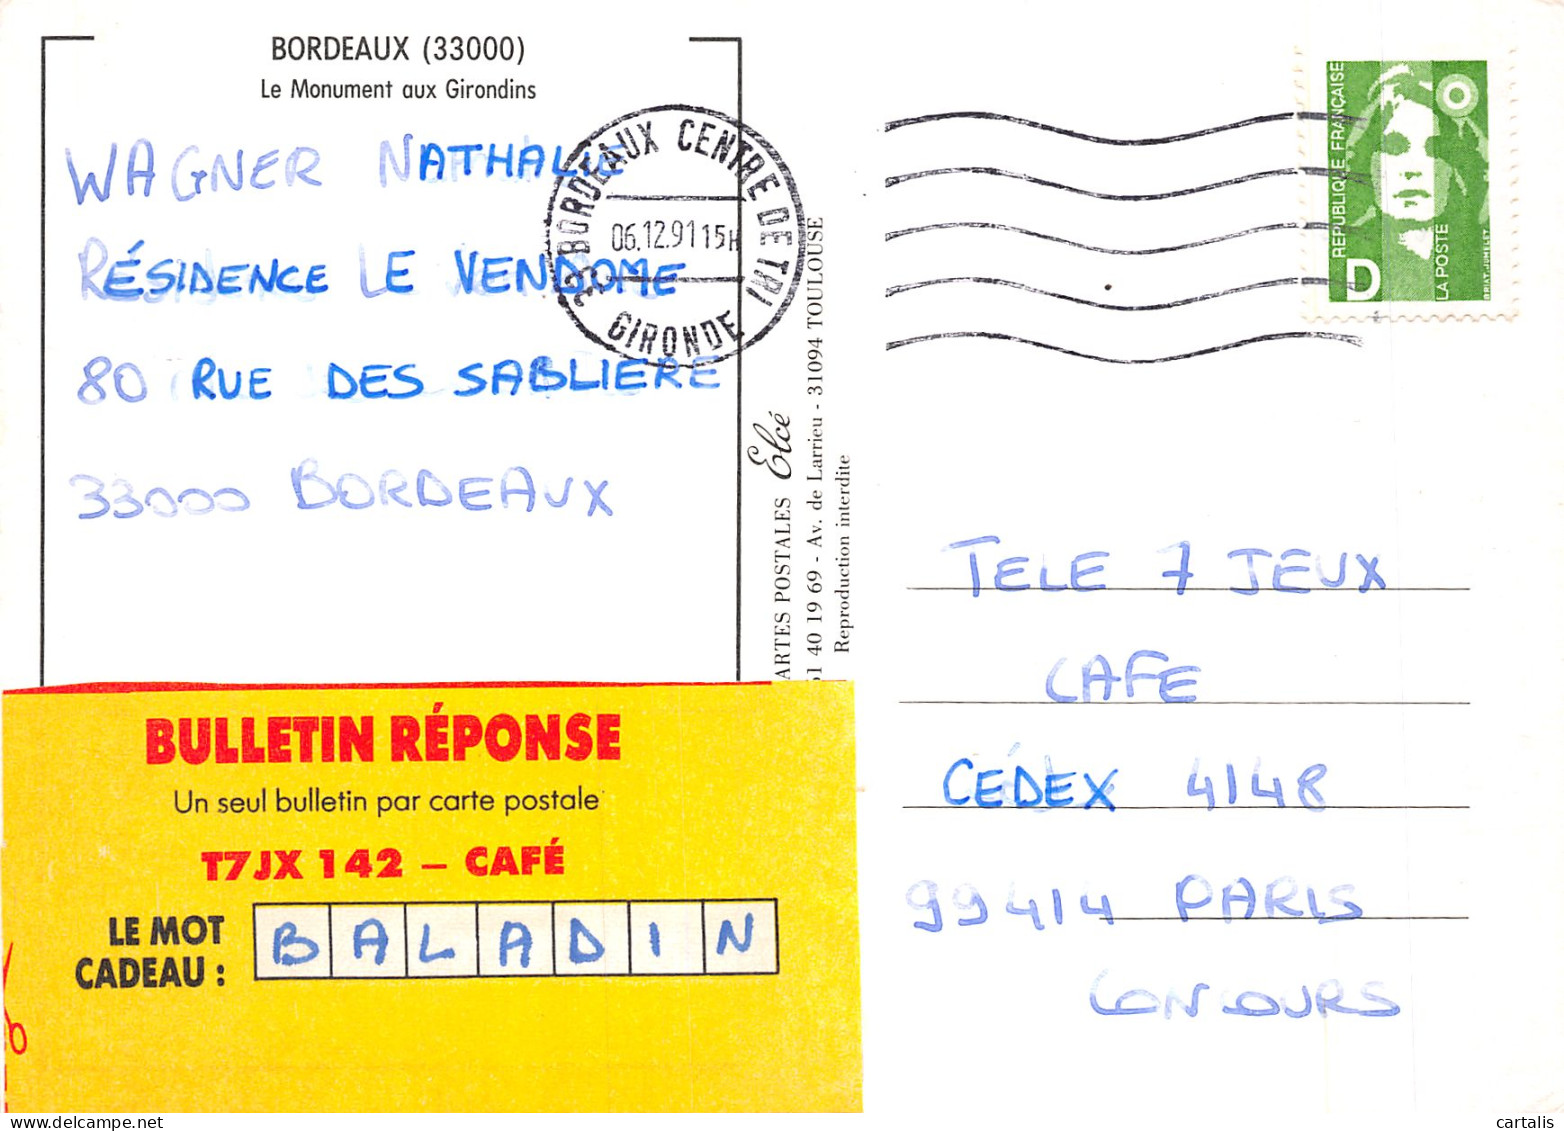 BORDEAUX (33000)
Le Monument aux Girondins
WAGNER NATHALIE
RÉSIDENCE LE VENDOME
80 RUE DES SABLIERE
33000 BORDEAUX
33 BORDEAUX CENTRE DE TRI
06.12.91 15H
GIRONDE
REPUBLIQUE FRANÇAISE
D
LA POSTE
BRIAT-JUMELET
ARTES POSTALES Elcé
61 40 19 69 - Av. de Larrieu - 31094 TOULOUSE
Reproduction interdite
TELE 7 JEUX
CAFE
CÉDEX 4148
99414 PARIS
CONCOURS
BULLETIN RÉPONSE
Un seul bulletin par carte postale
T7JX 142 – CAFÉ
LE MOT
CADEAU :
BALADIN
cartalis
www.delcampe.net